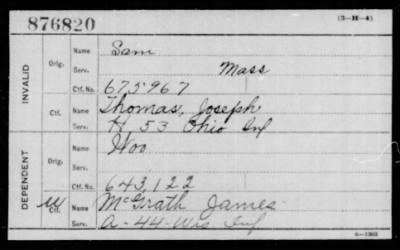 876820
(3-H-4)
INVALID
Orig.
Name Sam
Serv. Mass
Ctf. No. 675967
Ctf.
Name Thomas, Joseph
Serv. H 53 Ohio Inf
DEPENDENT
Orig.
Name Woo
Serv.
Ctf. No. 643,122
Ctf.
Name McGrath James
Serv. A-44-Wis Inf
6-1303